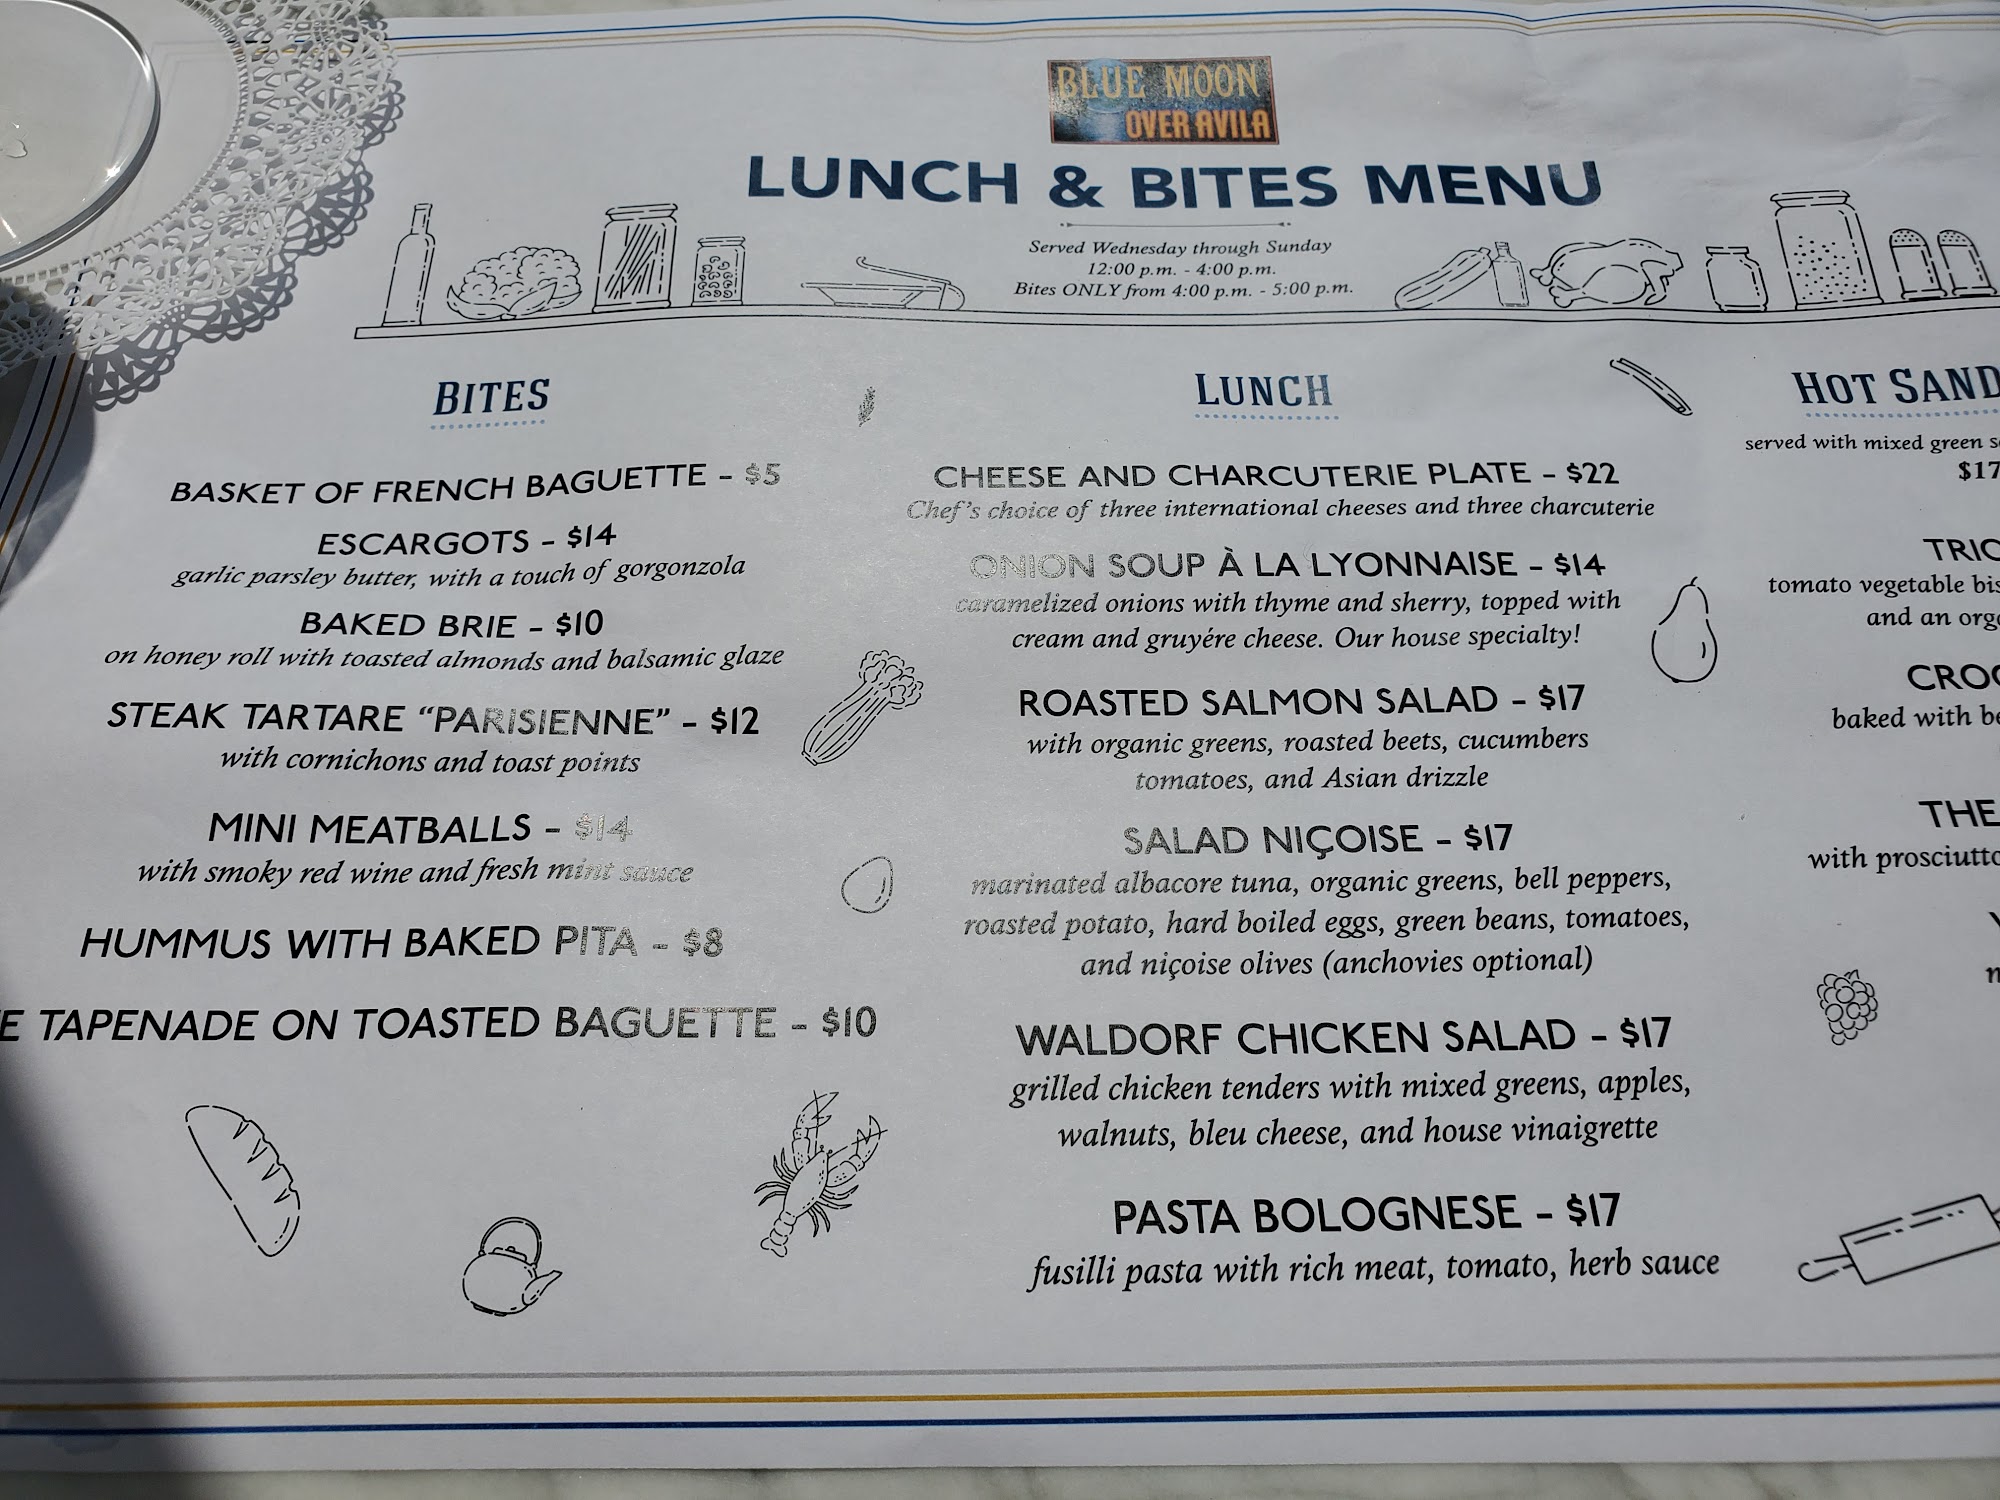 BLUE MOON
OVER AVILA
LUNCH & BITES MENU
Served Wednesday through Sunday
12:00 p.m. - 4:00 p.m.
Bites ONLY from 4:00 p.m. - 5:00 p.m.
BITES
BASKET OF FRENCH BAGUETTE – $5
ESCARGOTS – $14
garlic parsley butter, with a touch of gorgonzola
BAKED BRIE – $10
on honey roll with toasted almonds and balsamic glaze
STEAK TARTARE “PARISIENNE” – $12
with cornichons and toast points
MINI MEATBALLS – $14
with smoky red wine and fresh mint sauce
HUMMUS WITH BAKED PITA – $8
E TAPENADE ON TOASTED BAGUETTE – $10
LUNCH
CHEESE AND CHARCUTERIE PLATE – $22
Chef's choice of three international cheeses and three charcuterie
ONION SOUP À LA LYONNAISE – $14
caramelized onions with thyme and sherry, topped with
cream and gruyére cheese. Our house specialty!
ROASTED SALMON SALAD – $17
with organic greens, roasted beets, cucumbers
tomatoes, and Asian drizzle
SALAD NIÇOISE – $17
marinated albacore tuna, organic greens, bell peppers,
roasted potato, hard boiled eggs, green beans, tomatoes,
and niçoise olives (anchovies optional)
WALDORF CHICKEN SALAD – $17
grilled chicken tenders with mixed greens, apples,
walnuts, bleu cheese, and house vinaigrette
PASTA BOLOGNESE – $17
fusilli pasta with rich meat, tomato, herb sauce
HOT SAND
served with mixed green s
$17
TRIO
tomato vegetable bis
and an orga
CROQ
baked with be
THE
with prosciutto